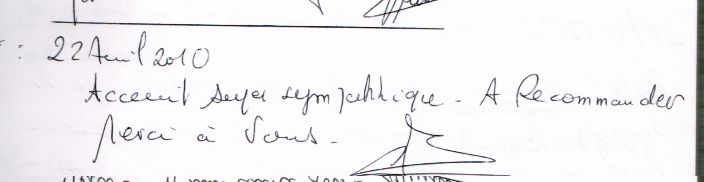 : 22 Avril 2010
Acceuil super sympathique - A Recommander
Merci à Vous -